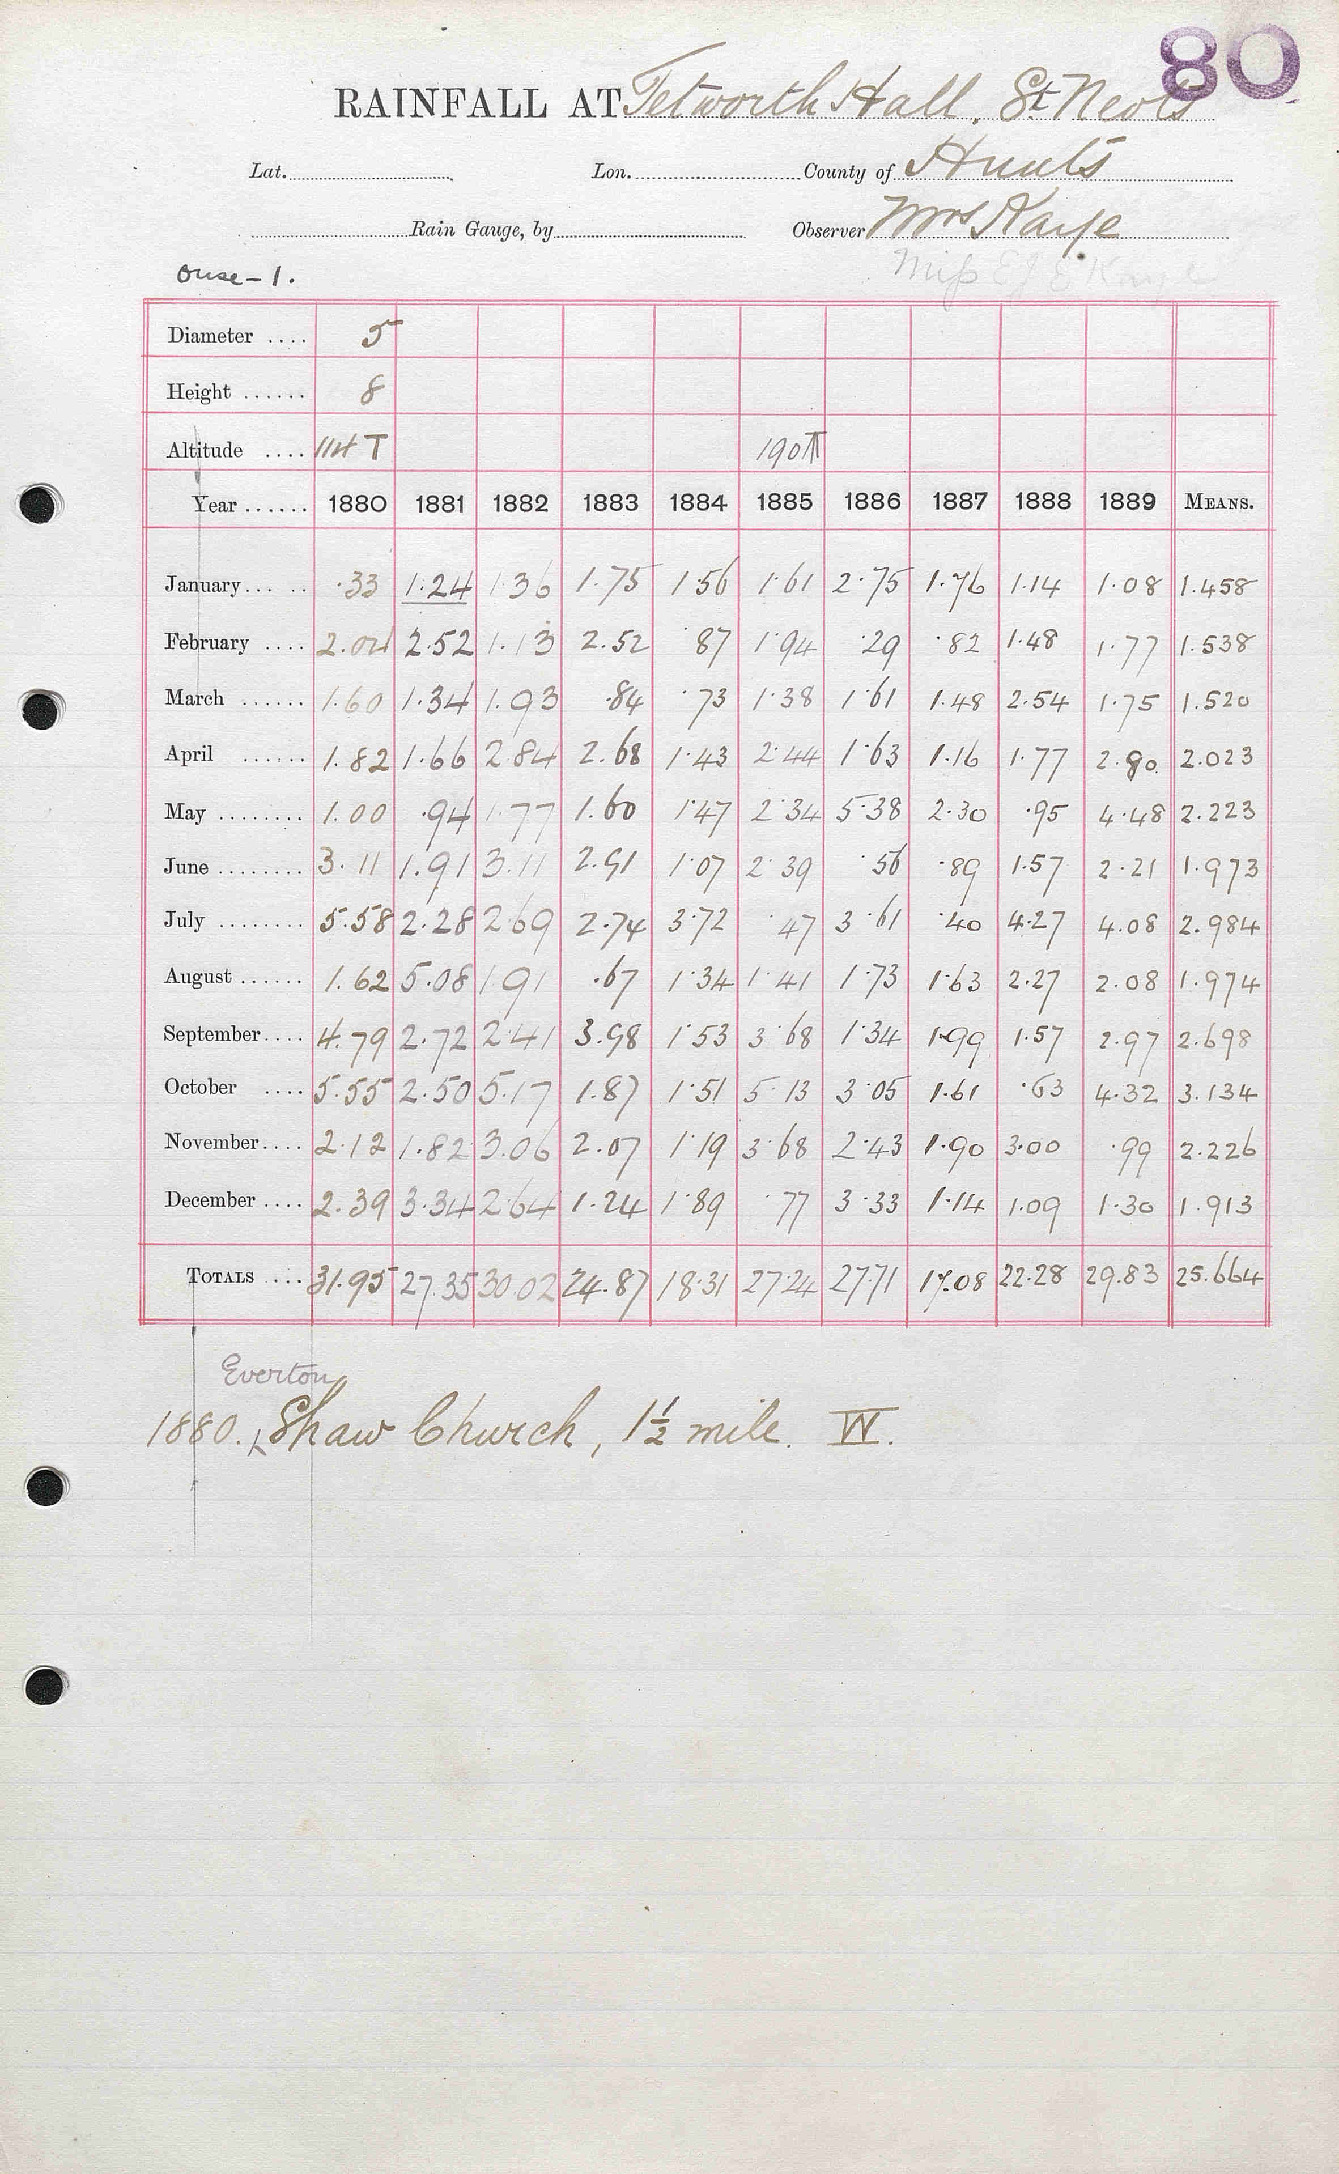 80
RAINFALL AT Tetworth Hall, St Neots
Lat. Lon. County of Hunts
Rain Gauge, by Observer Mrs Kaye
Ouse-1. Miss E J E Kaye
Diameter .... 5
Height ...... 8
Altitude .... 114 T 190 T
Year ...... 1880 1881 1882 1883 1884 1885 1886 1887 1888 1889 MEANS.
January... .. .33 1.24 1.36 1.75 1.56 1.61 2.75 1.76 1.14 1.08 1.458
February .... 2.04 2.52 1.13 2.52 .87 1.94 .29 .82 1.48 1.77 1.538
March ...... 1.60 1.34 1.93 .84 .73 1.38 1.61 1.48 2.54 1.75 1.520
April ...... 1.82 1.66 2.84 2.68 1.43 2.44 1.63 1.16 1.77 2.80 2.023
May ........ 1.00 .94 1.77 1.60 1.47 2.34 5.38 2.30 .95 4.48 2.223
June ........ 3.11 1.91 3.11 2.91 1.07 2.39 .56 .89 1.57 2.21 1.973
July ........ 5.58 2.28 2.69 2.74 3.72 .47 3.61 .40 4.27 4.08 2.984
August ...... 1.62 5.08 1.91 .67 1.34 1.41 1.73 1.63 2.27 2.08 1.974
September.... 4.79 2.72 2.41 3.98 1.53 3.68 1.34 1.99 1.57 2.97 2.698
October .... 5.55 2.50 5.17 1.87 1.51 5.13 3.05 1.61 .63 4.32 3.134
November.... 2.12 1.82 3.06 2.07 1.19 3.68 2.43 1.90 3.00 .99 2.226
December .... 2.39 3.34 2.64 1.24 1.89 .77 3.33 1.14 1.09 1.30 1.913
TOTALS .... 31.95 27.35 30.02 24.87 18.31 27.24 27.71 17.08 22.28 29.83 25.664
Everton
1880. Shaw Church, 1½ mile. W.